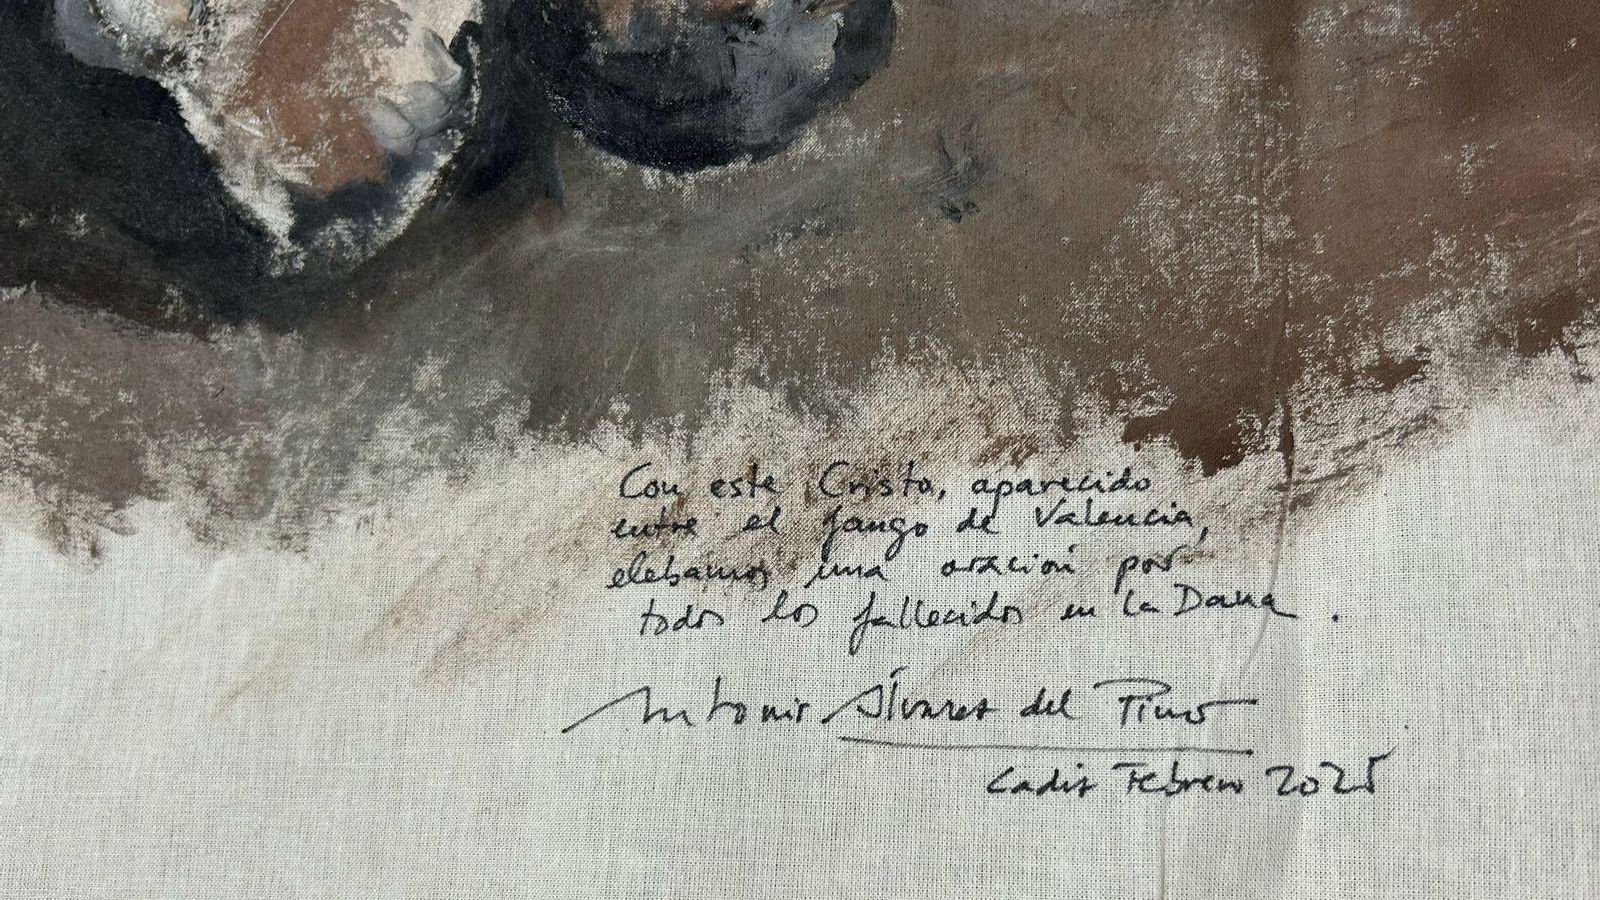 Con este Cristo, aparecido
entre el fango de Valencia,
elebamos una oración por
todos los fallecidos en la Dana.
Antonio Álvarez del Pino
Cadiz Febrero 2025